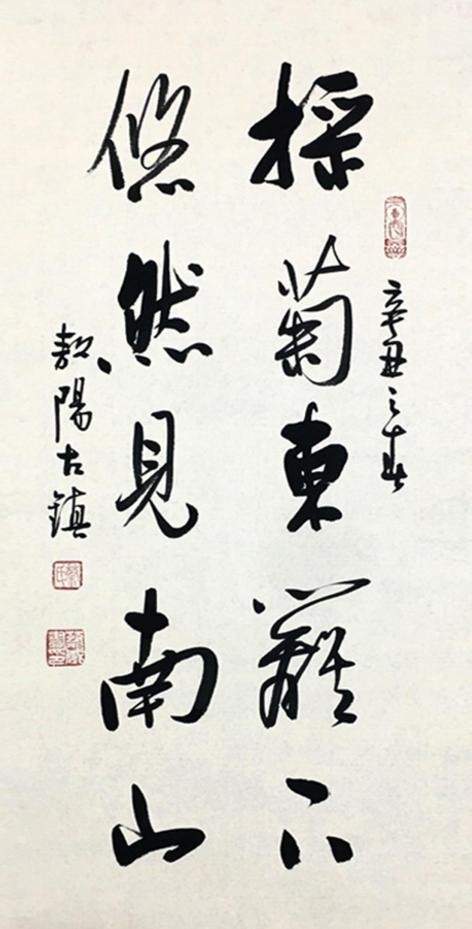 辛丑之春
採菊東籬下
悠然見南山
敖陽古鎮